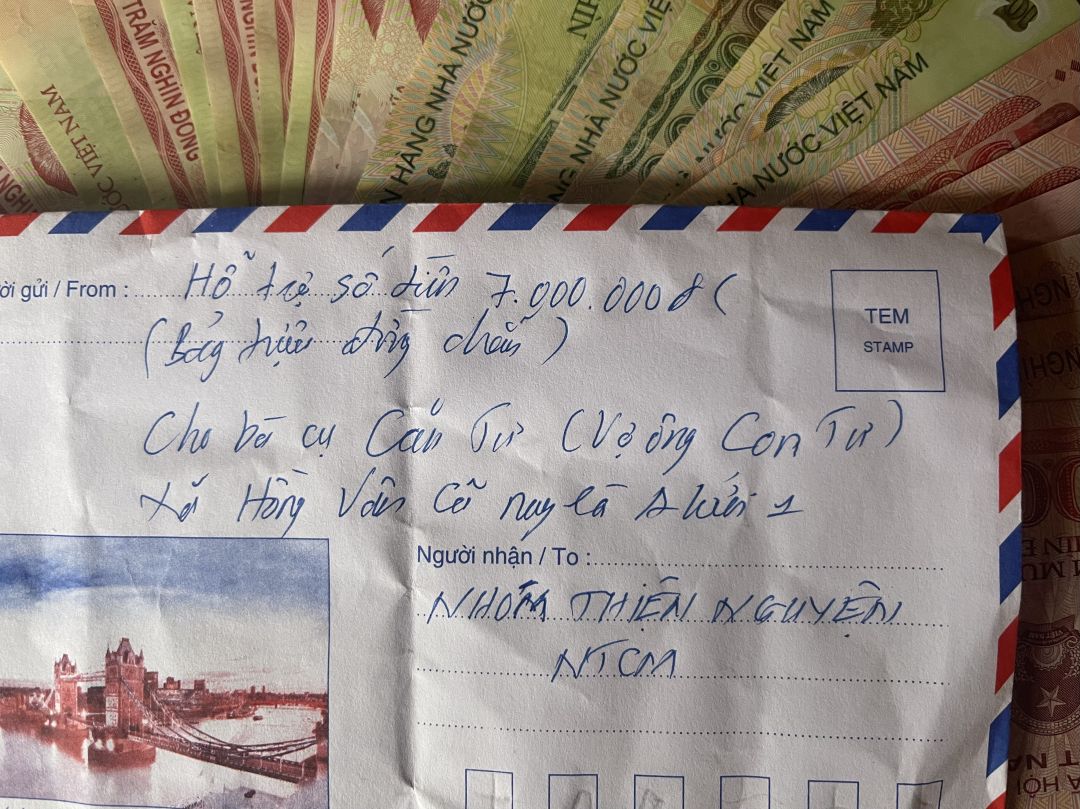 TRĂM NGHÌN ĐỒNG
NGÂN HÀNG NHÀ NƯỚC VIỆT NAM
NHÀ NƯỚC VIỆT NAM
VIỆT NAM
NHÀ NƯỚC VIỆT NAM
gửi / From : Hỗ trợ số tiền 7.000.000đ (
(Bảy triệu đồng chẵn)
TEM
STAMP
Cho bà cụ Căn Tư (Vợ ông Con Tư)
Xã Hồng Vân Cũ nay là A Lưới 1
Người nhận / To :
NHÓM THIỆN NGUYỆN
NTCM